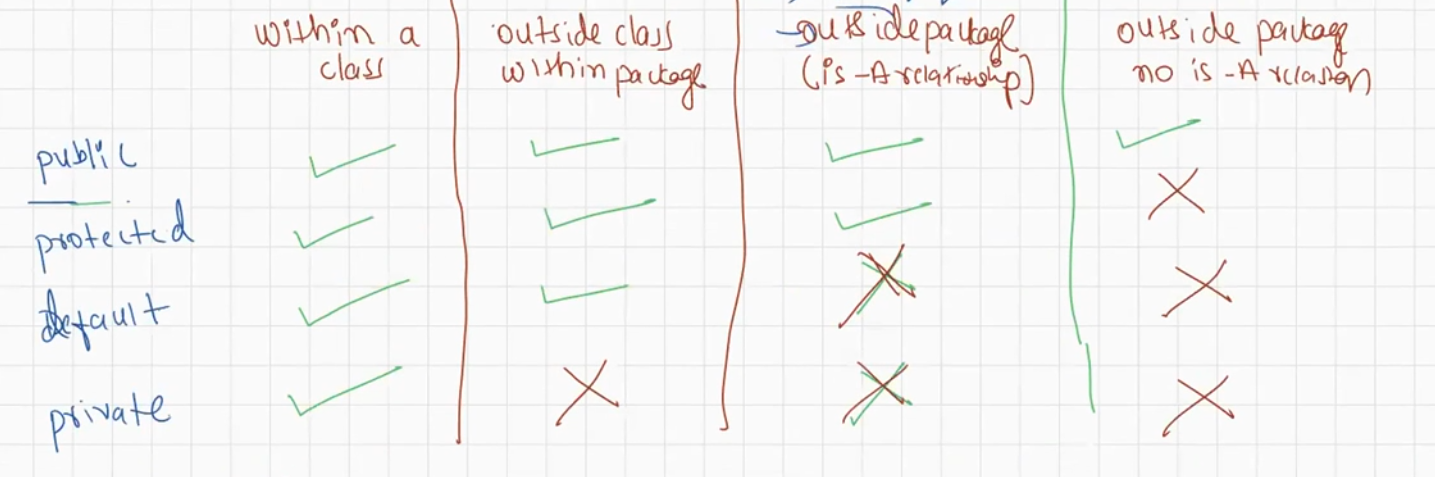 within a
class
outside class
within package
outside package
(is-A relationship)
outside package
no is-A relation
public ✓ ✓ ✓ ✓
protected ✓ ✓ ✓ ✗
default ✓ ✓ ✗ ✗
private ✓ ✗ ✗ ✗